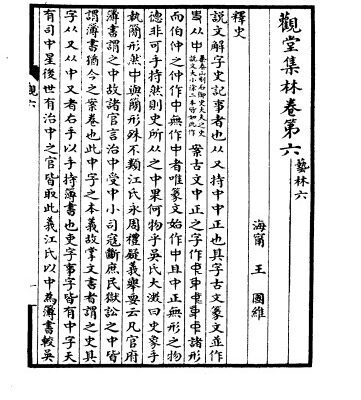 觀堂集林卷第六
藝林六
海甯 王國維
釋史
說文解字史記事者也从又持中中正也其字古文篆文並作
从中
秦泰山刻石御史大夫之史
說文大小徐二本皆如此作
案古文中正之字作諸形
而伯仲之仲作中無作者唯篆文始作中且中正無形之物
德非可手持然則史所从之中果何物乎吳氏大澂曰史象手
執簡形然中與簡形殊不類江氏永周禮疑義舉要云凡官府
簿書謂之中故諸官言治中受中小司寇斷庶民獄訟之中皆
謂簿書猶今之案卷也此中字之本義故掌文書者謂之史其
字从又从中又者右手以手持簿書也吏字事字皆有中字天
有司中星後世有治中之官皆取此義江氏以中為簿書較吳